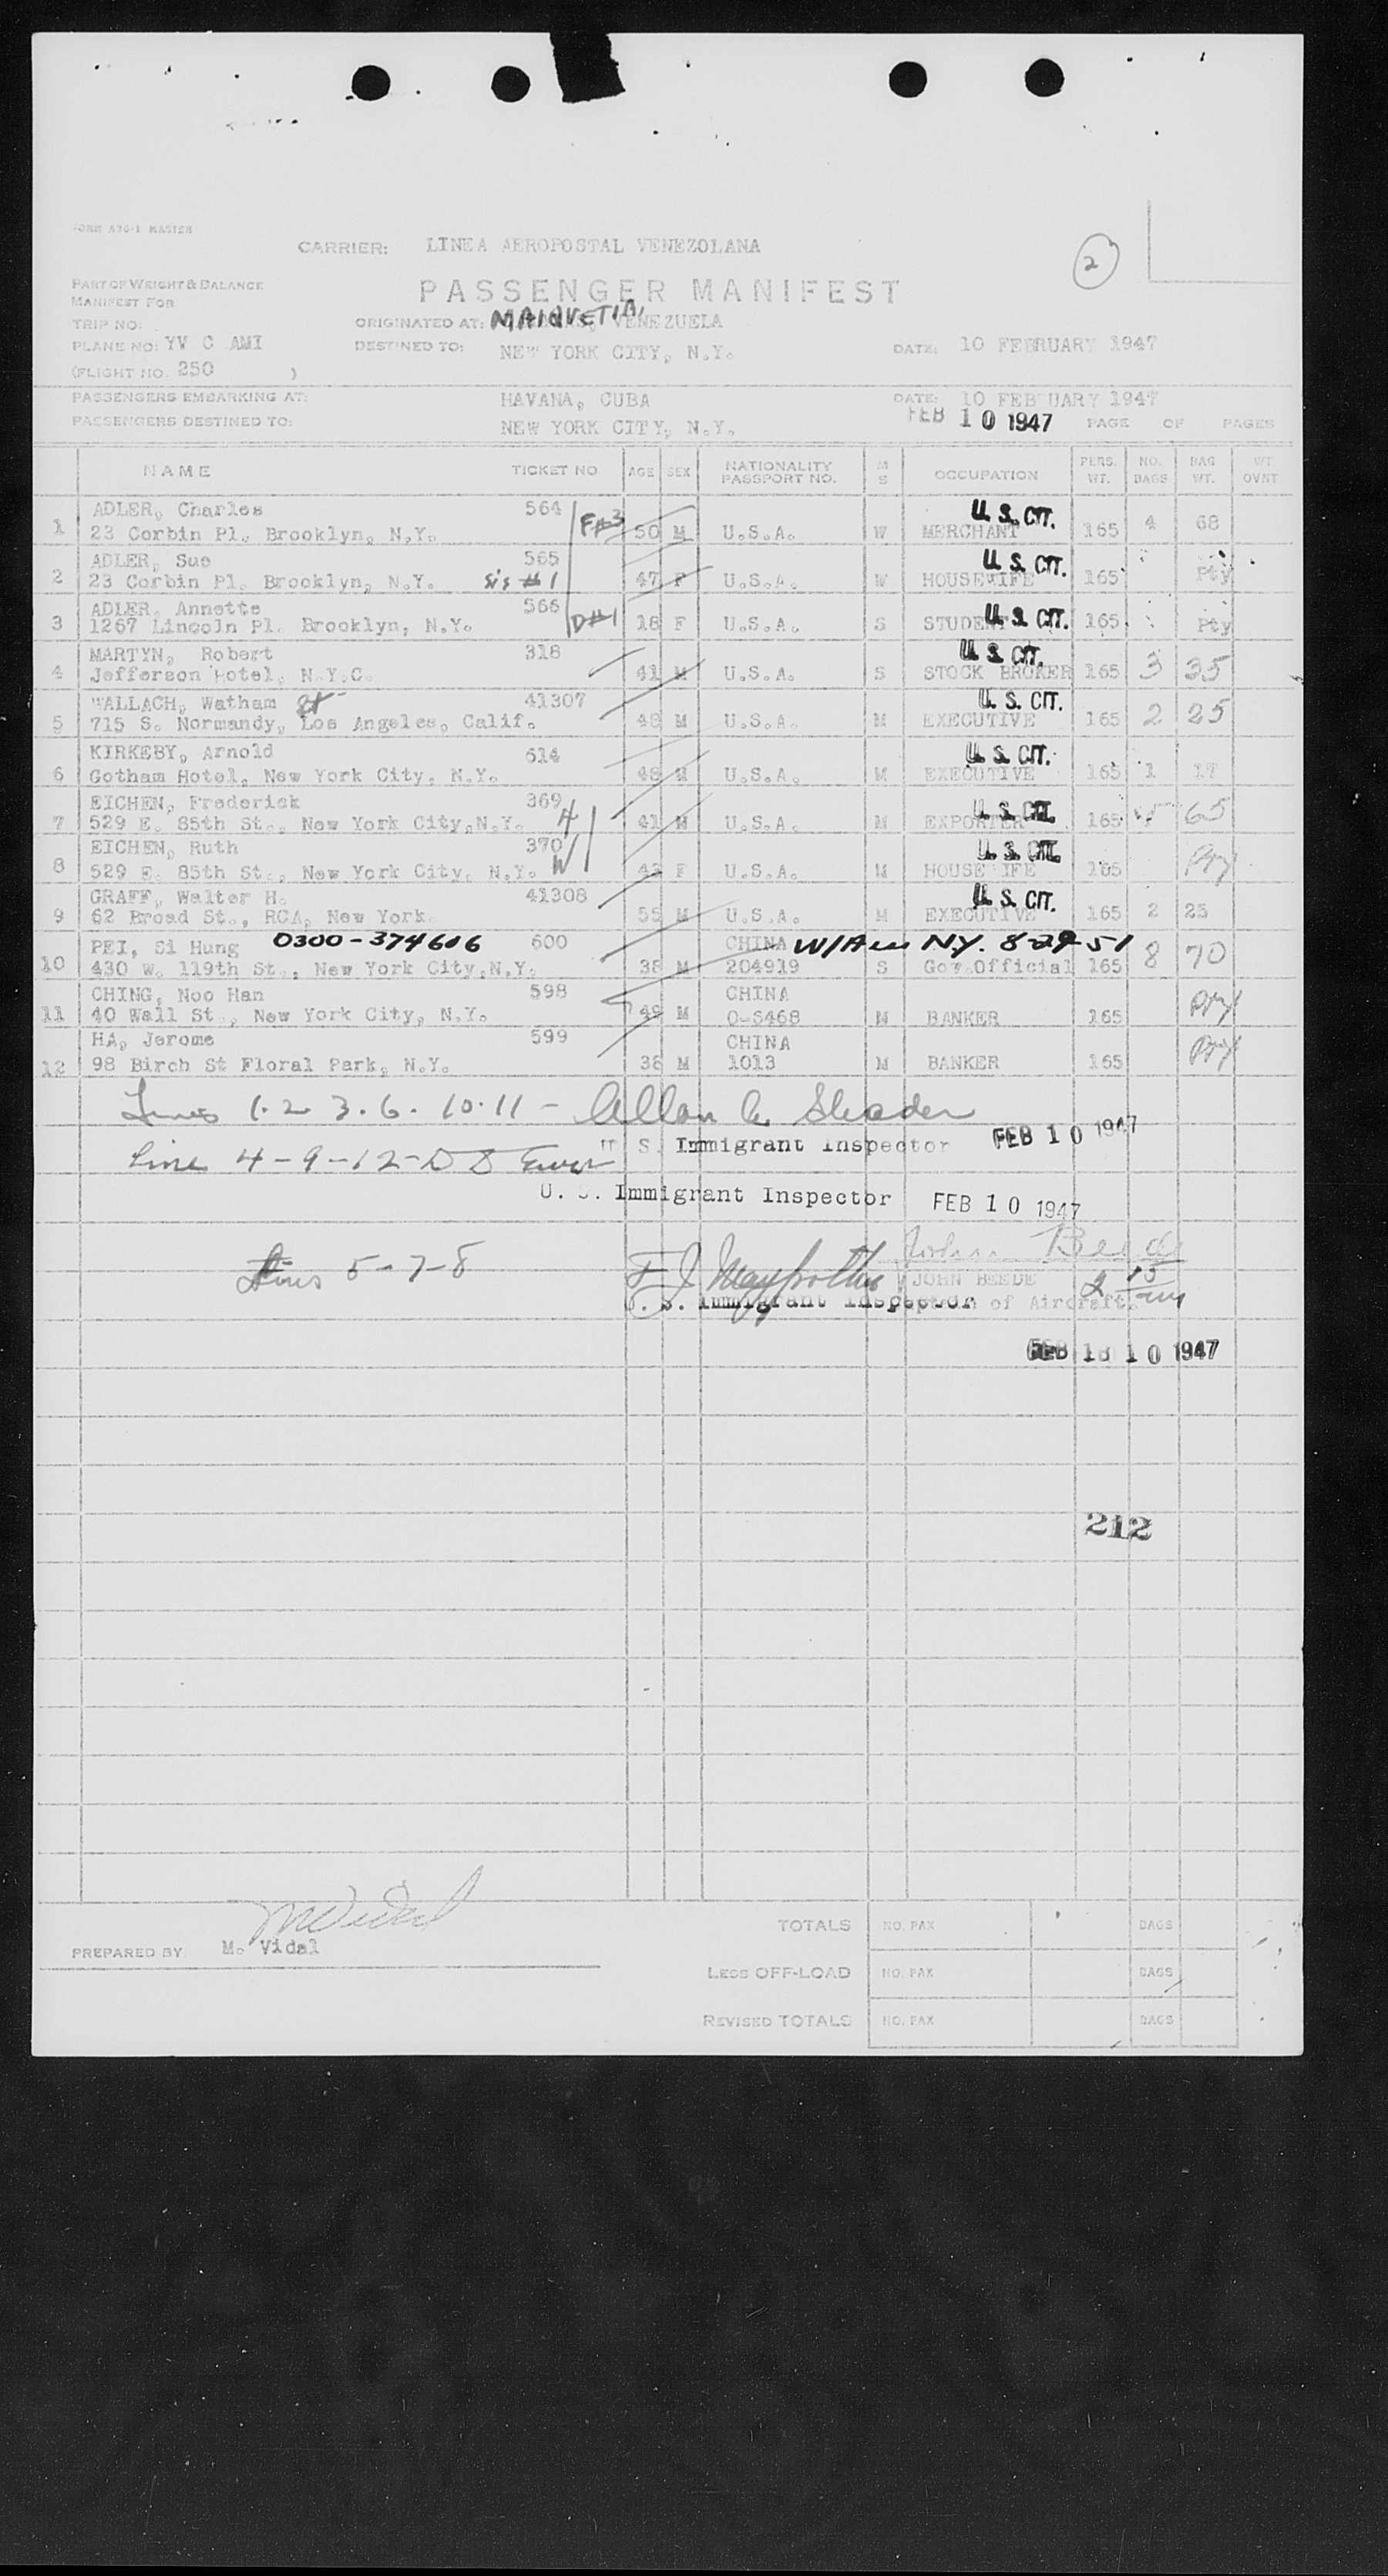 FORM A36-1 MASTER
CARRIER: LINEA AEROPOSTAL VENEZOLANA
2
PART OF WEIGHT & BALANCE
MANIFEST FOR
PASSENGER MANIFEST
TRIP NO:
ORIGINATED AT: MAIQUETIA, VENEZUELA
PLANE NO: YV C AMI
DESTINED TO: NEW YORK CITY, N.Y.
DATE: 10 FEBRUARY 1947
(FLIGHT NO. 250 )
PASSENGERS EMBARKING AT: HAVANA, CUBA
DATE: 10 FEB UARY 1947
PASSENGERS DESTINED TO: NEW YORK CITY, N.Y.
FEB 10 1947 PAGE OF PAGES
NAME TICKET NO AGE SEX NATIONALITY PASSPORT NO. M S OCCUPATION PERS. WT. NO. BAGS BAG WT. WT. OVNT
ADLER, Charles 564 F#3 U.S. CIT.
1 23 Corbin Pl. Brooklyn, N.Y. 50 M U.S.A. W MERCHANT 165 4 68
ADLER, Sue 565 U.S. CIT.
2 23 Corbin Pl. Brooklyn, N.Y. Sis #1 47 F U.S.A. W HOUSEWIFE 165 Pty
ADLER, Annette 566 D#1 U.S. CIT.
3 1267 Lincoln Pl. Brooklyn, N.Y. 18 F U.S.A. S STUDENT 165 Pty
MARTYN, Robert 318 U.S. CIT.
4 Jefferson Hotel, N.Y.C. 41 M U.S.A. S STOCK BROKER 165 3 35
WALLACH, Watham 41307 U.S. CIT.
5 715 S. Normandy, Los Angeles, Calif. 48 M U.S.A. M EXECUTIVE 165 2 25
KIRKEBY, Arnold 614 U.S. CIT.
6 Gotham Hotel, New York City, N.Y. 48 M U.S.A. M EXECUTIVE 165 1 17
EICHEN, Frederick 369 H U.S. CIT.
7 529 E. 85th St., New York City, N.Y. 41 M U.S.A. M EXPORTER 165 65
EICHEN, Ruth 370 W U.S. CIT.
8 529 E. 85th St., New York City, N.Y. 42 F U.S.A. M HOUSEWIFE 165 Pty
GRAFF, Walter H. 41308 U.S. CIT.
9 62 Broad St., RCA, New York 55 M U.S.A. M EXECUTIVE 165 2 25
PEI, Si Hung 0300-374606 600 CHINA N.Y. 8-29-51
10 430 W. 119th St., New York City, N.Y. 38 M 204919 S Gov.Official 165 8 70
CHING, Noo Han 598 CHINA
11 40 Wall St., New York City, N.Y. 49 M 0-6468 M BANKER 165 Pty
HA, Jerome 599 CHINA
12 98 Birch St Floral Park, N.Y. 38 M 1013 M BANKER 165 Pty
Lines 1.2 3.6. 10.11 - Allan
U S. Immigrant Inspector FEB 10 1947
Line 4-9-12-
U. S. Immigrant Inspector FEB 10 1947
Lines 5-7-8 John Beede
JOHN BEEDE
U. S. Immigrant Inspector of Aircraft
FEB 10 1947
212
M Vidal
PREPARED BY M. Vidal
TOTALS NO. PAX BAGS
LESS OFF-LOAD NO. PAX BAGS
REVISED TOTALS NO. PAX BAGS